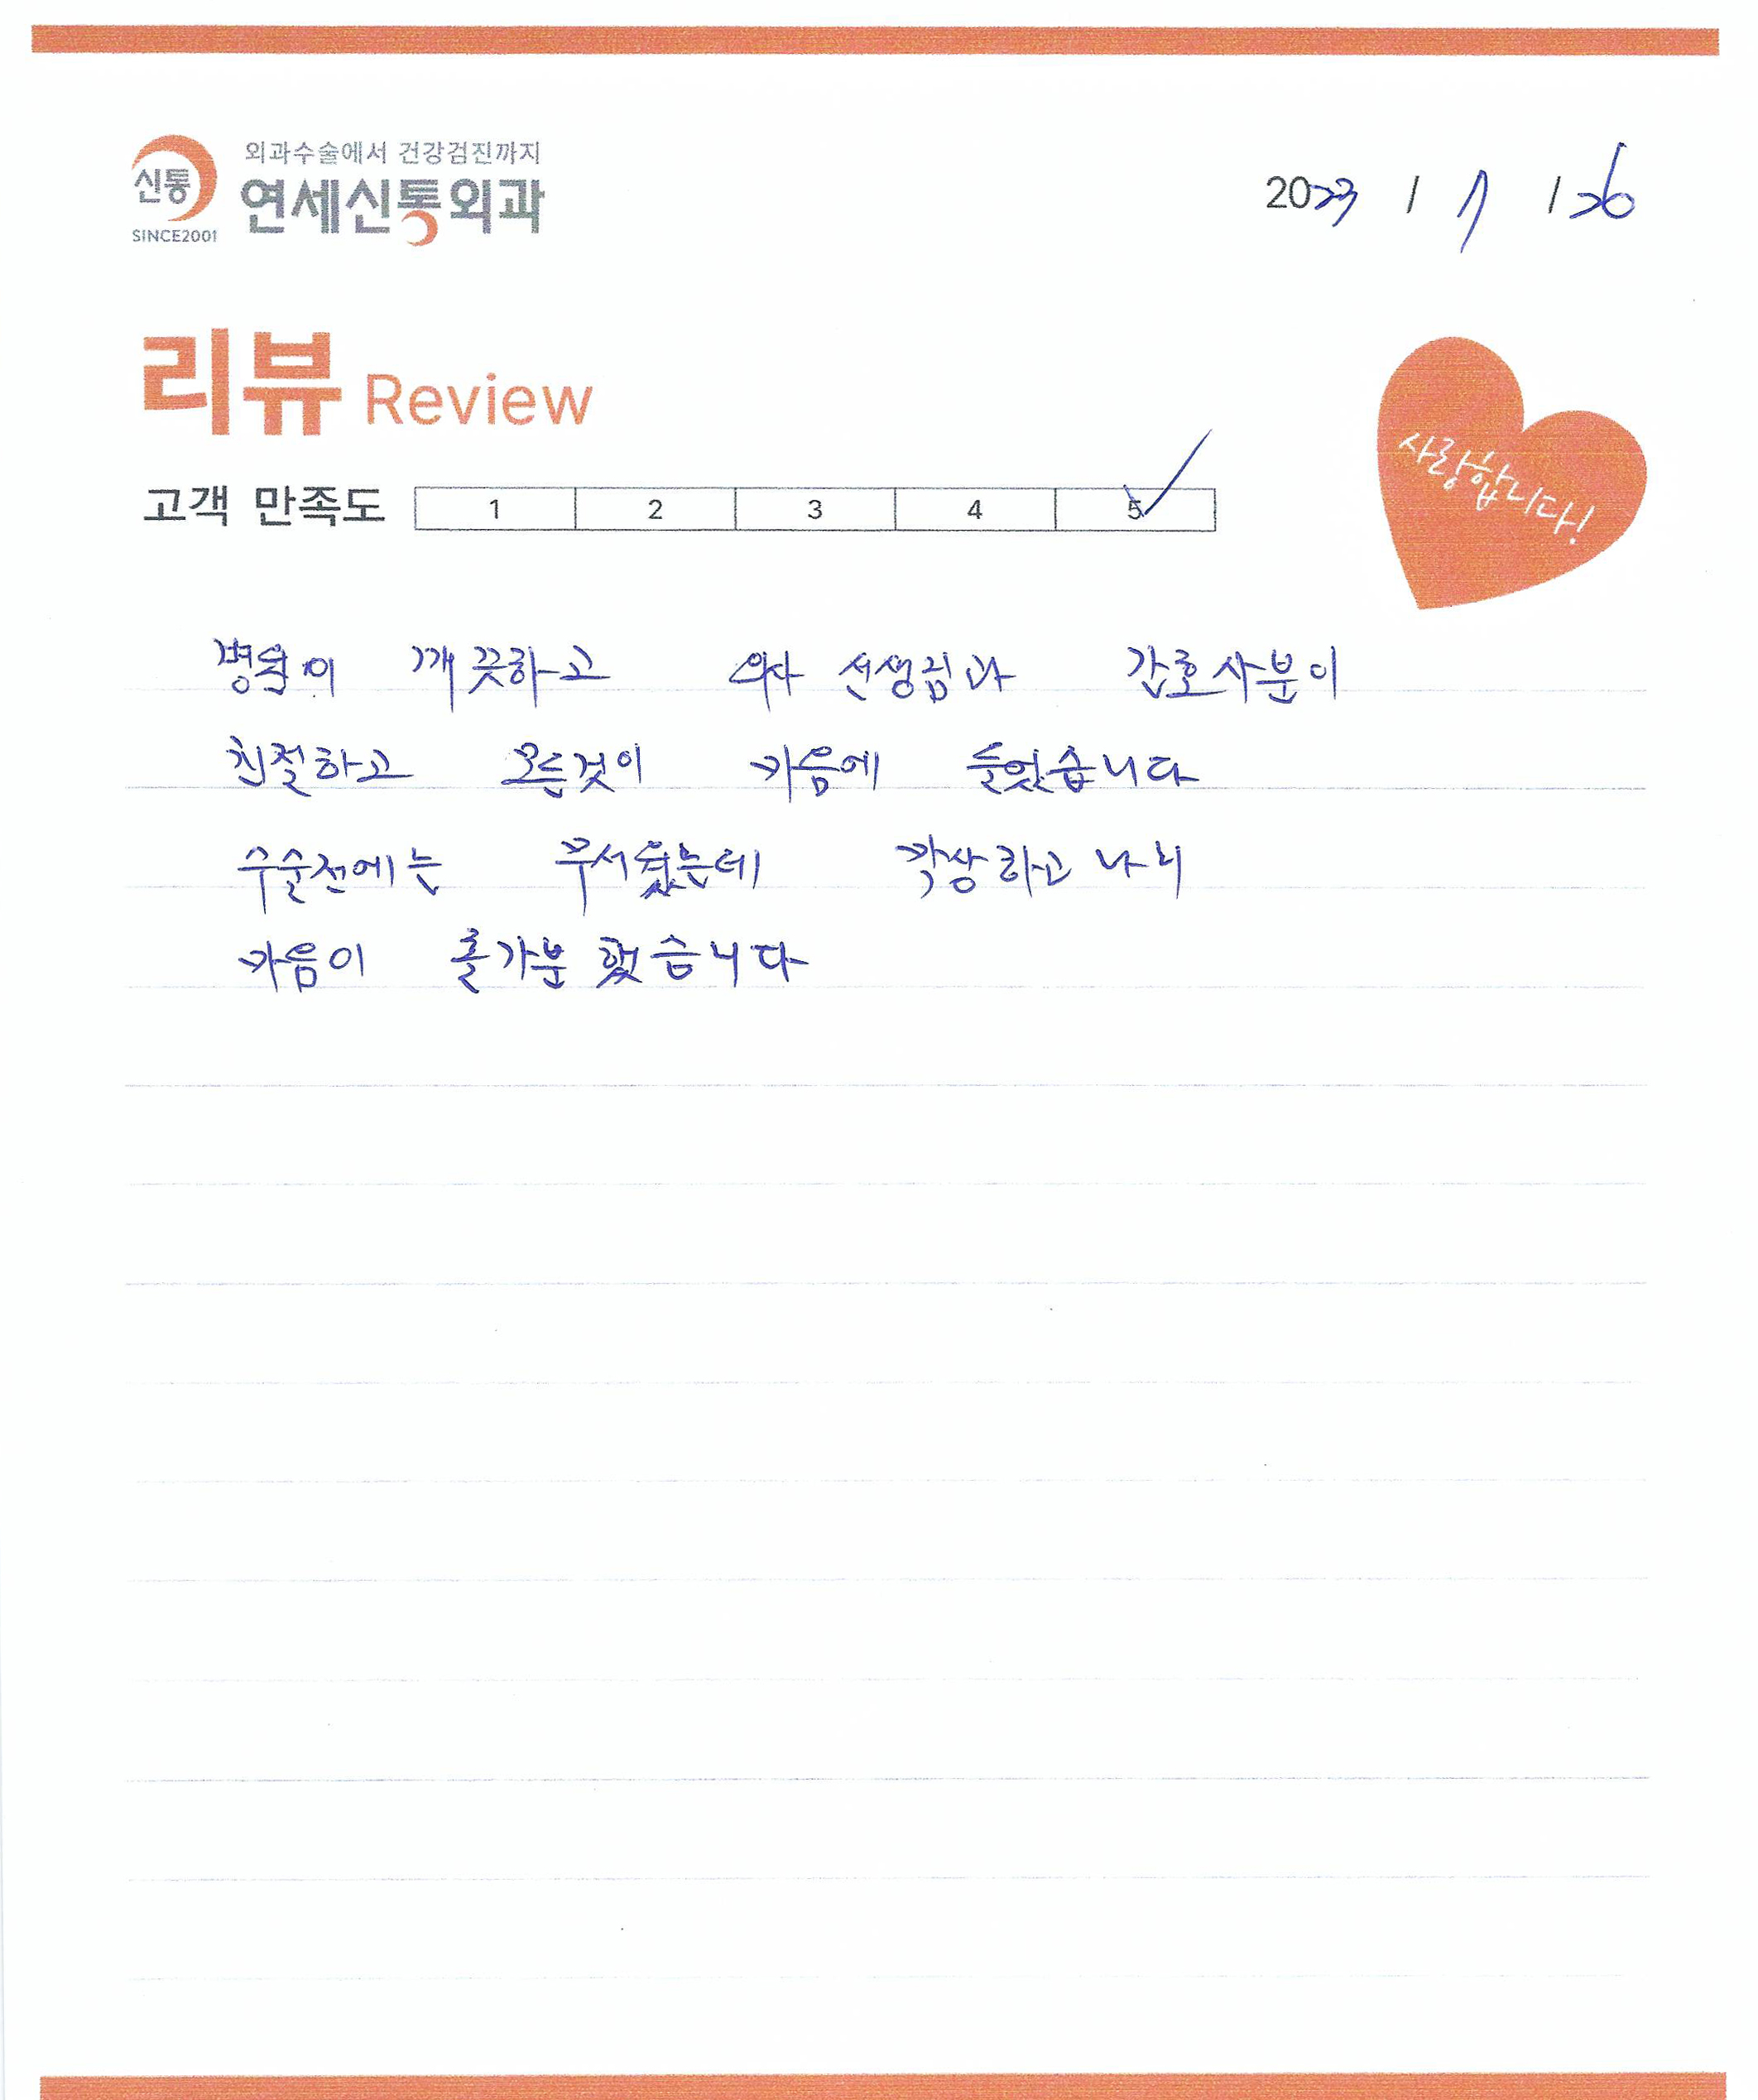 외과수술에서 건강검진까지
신통 연세신통외과
SINCE2001
2023 / 7 / 26
리뷰 Review
사랑합니다!
고객 만족도 1 2 3 4 5
병원이 깨끗하고 의사 선생님과 간호사분이
친절하고 모든것이 마음에 들었습니다
수술전에는 무서웠는데 막상하고 나니
마음이 홀가분 했습니다